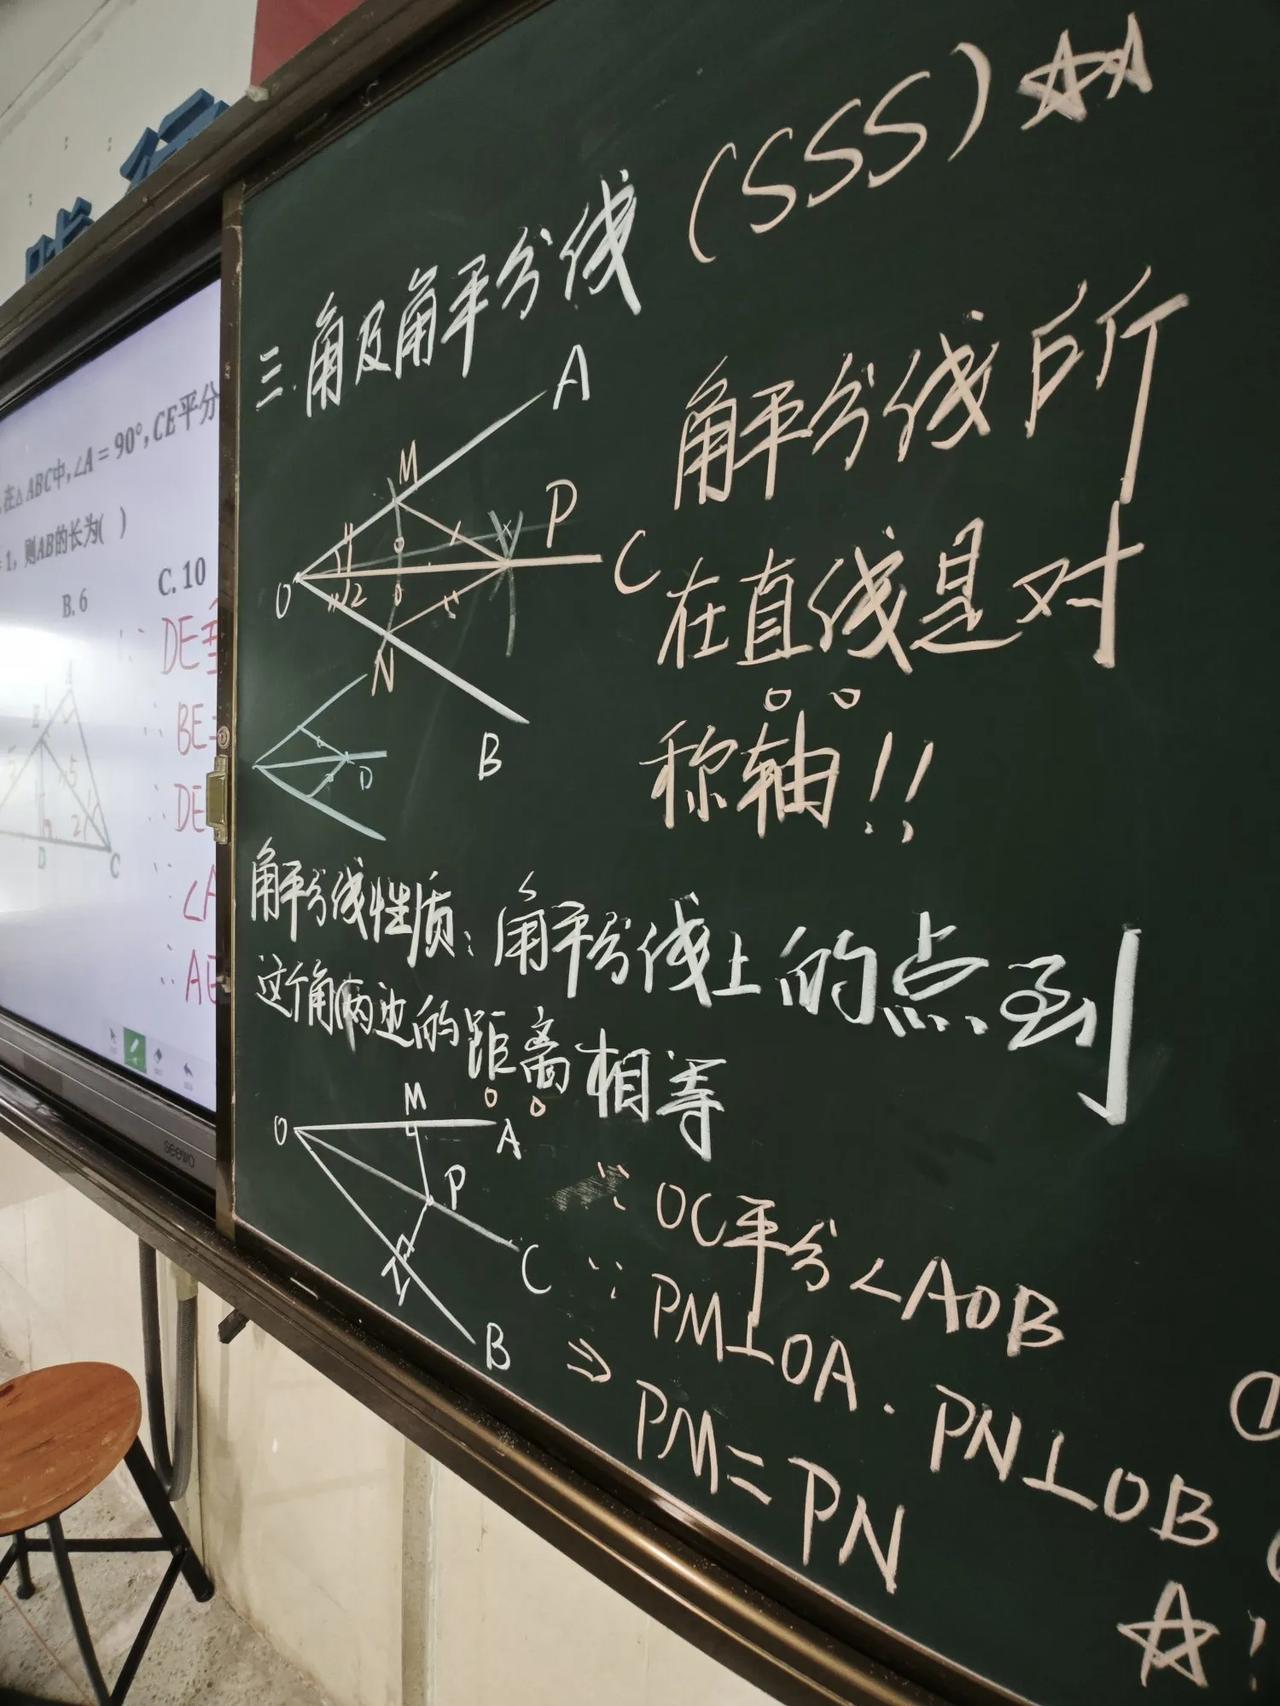 三.角及角平分线 (SSS) ☆☆
角平分线所
在直线是对
称轴!!
A
M
P
C
O
1
2
N
B
D
角平分线性质:角平分线上的点到
这个角两边的距离相等
O
M
A
P
C
N
B
∵ OC平分∠AOB
∵ PM⊥OA. PN⊥OB
⇒ PM=PN
☆!
在△ABC中,∠A=90°,CE平分
=1,则AB的长为( )
B.6
C.10
DE
BE
DE
∠A
D
C
5
2
seewo